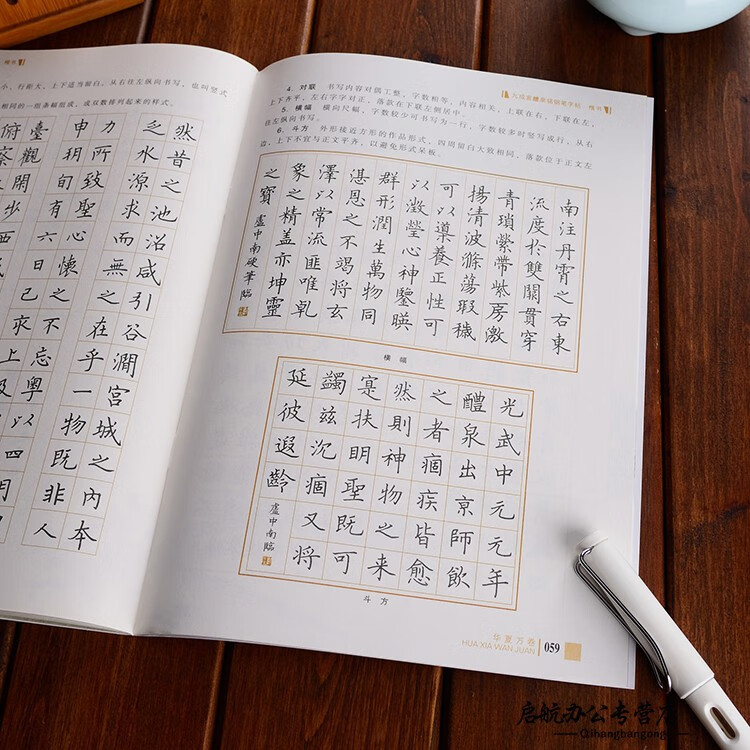 楷书
小、行距大，上下适当留白，从右往左纵向书写，也叫竖式
相同的一组条幅组成，成双数排列起来的样式。
然昔之池沼咸引谷澗宮城之內本
之水源求而無之在乎一物既非人
力所致聖心懷之不忘粵以四月
申朔旬有六日己亥上及
臺觀閒步西
九成宫醴泉铭硬笔字帖 楷书
4. 对联 书写内容对偶工整，字数相等，内容相关，上联在右，下联在左，
上下齐平，左右字字对正，落款在下联左侧居中。
5. 横幅 横向尺幅，字数较少可书写为一行，字数较多时竖写成行，从右
往左纵向书写。
6. 斗方 外形接近方形的作品形式，四周留白大致相同，落款位于正文左
边，上下不宜与正文平齐，以避免形式呆板。
南注丹霄之右東
流度於雙闕貫穿
青瑣縈帶紫房激
揚清波滌蕩瑕穢
可以導養正性可
以澂瑩心神鑒暎
群形潤生萬物同
湛恩之不竭將玄
澤以常流匪唯乹
象之精盖亦坤靈
之寶
盧中南硬筆臨
横幅
光武中元元年
醴泉出京師飲
之者痼疾皆愈
然則神物之来
寔扶明聖既可
蠲兹沉痼又將
延彼遐齡
盧中南臨
斗方
华夏万卷
HUA XIA WAN JUAN
059
启航办公专营店
Qihangbangong